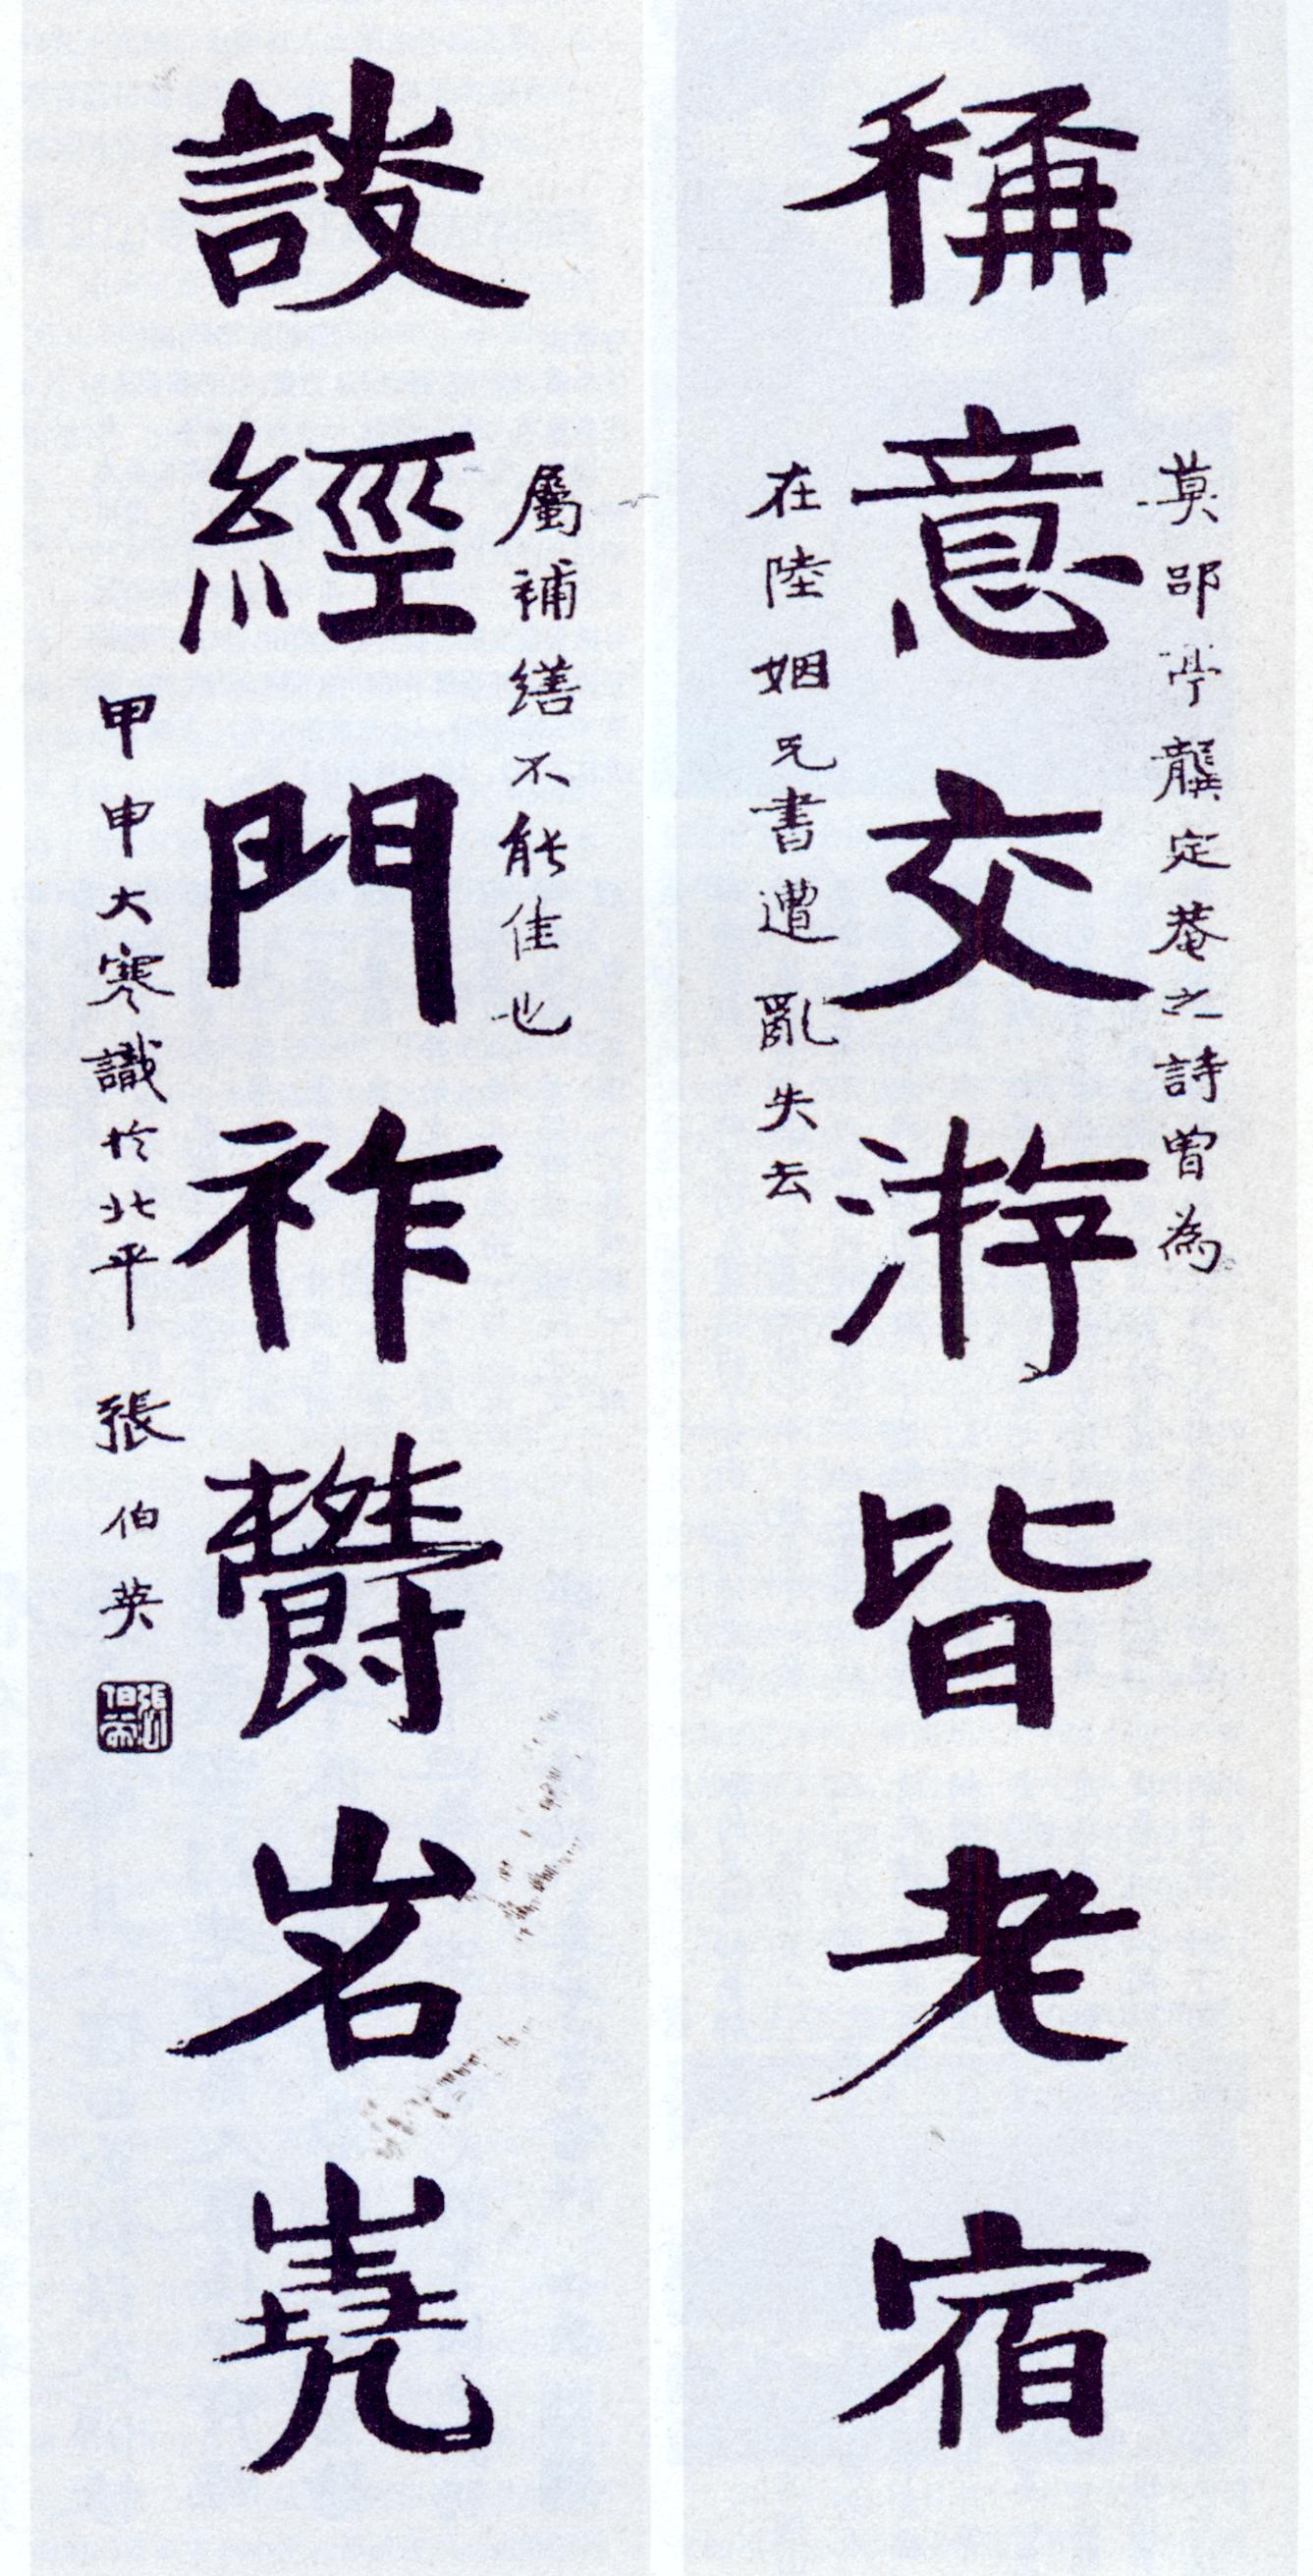 稱意交游皆老宿
莫郘亭龔定菴之詩曾為
在陸姻兄書遭亂失去
談經門祚鬱岧嶤
屬補繕不能佳也
甲申大寒識於北平 張伯英